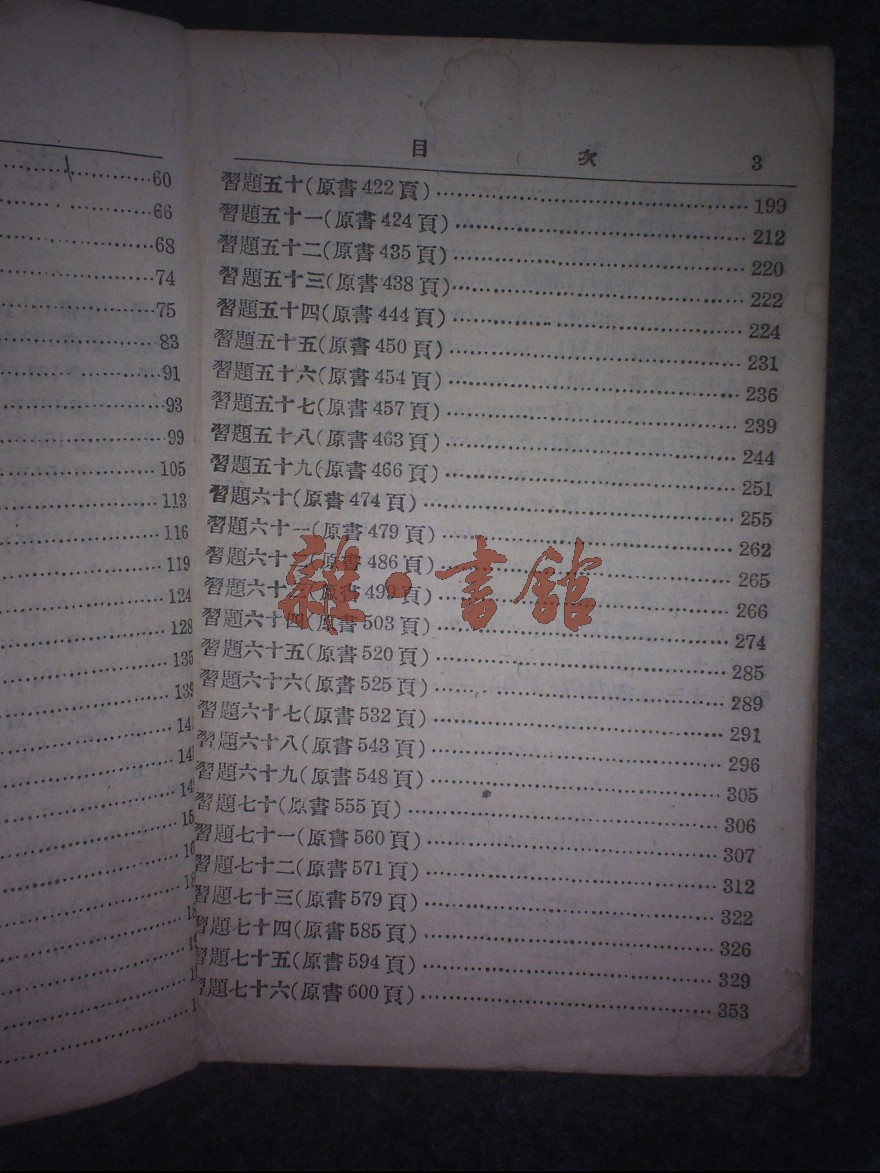 60
66
68
74
75
83
91
93
99
105
113
116
119
124
128
135
139
目 次 3
習題五十(原書422頁)……199
習題五十一(原書424頁)……212
習題五十二(原書435頁)……220
習題五十三(原書438頁)……222
習題五十四(原書444頁)……224
習題五十五(原書450頁)……231
習題五十六(原書454頁)……236
習題五十七(原書457頁)……239
習題五十八(原書463頁)……244
習題五十九(原書466頁)……251
習題六十(原書474頁)……255
習題六十一(原書479頁)……262
習題六十二(原書486頁)……265
習題六十三(原書499頁)……266
習題六十四(原書503頁)……274
習題六十五(原書520頁)……285
習題六十六(原書525頁)……289
習題六十七(原書532頁)……291
習題六十八(原書543頁)……296
習題六十九(原書548頁)……305
習題七十(原書555頁)……306
習題七十一(原書560頁)……307
習題七十二(原書571頁)……312
習題七十三(原書579頁)……322
習題七十四(原書585頁)……326
習題七十五(原書594頁)……329
習題七十六(原書600頁)……353
雜·書館